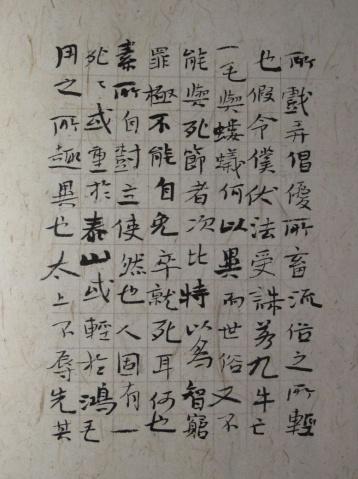 所戲弄倡優所畜流俗之所輕
也假令僕伏法受誅若九牛亡
一毛與螻蟻何以異而世俗又不
能與死節者次比特以為智窮
罪極不能自免卒就死耳何也
素所自樹立使然也人固有一
死〻或重於泰山或輕於鴻毛
用之所趨異也太上不辱先其